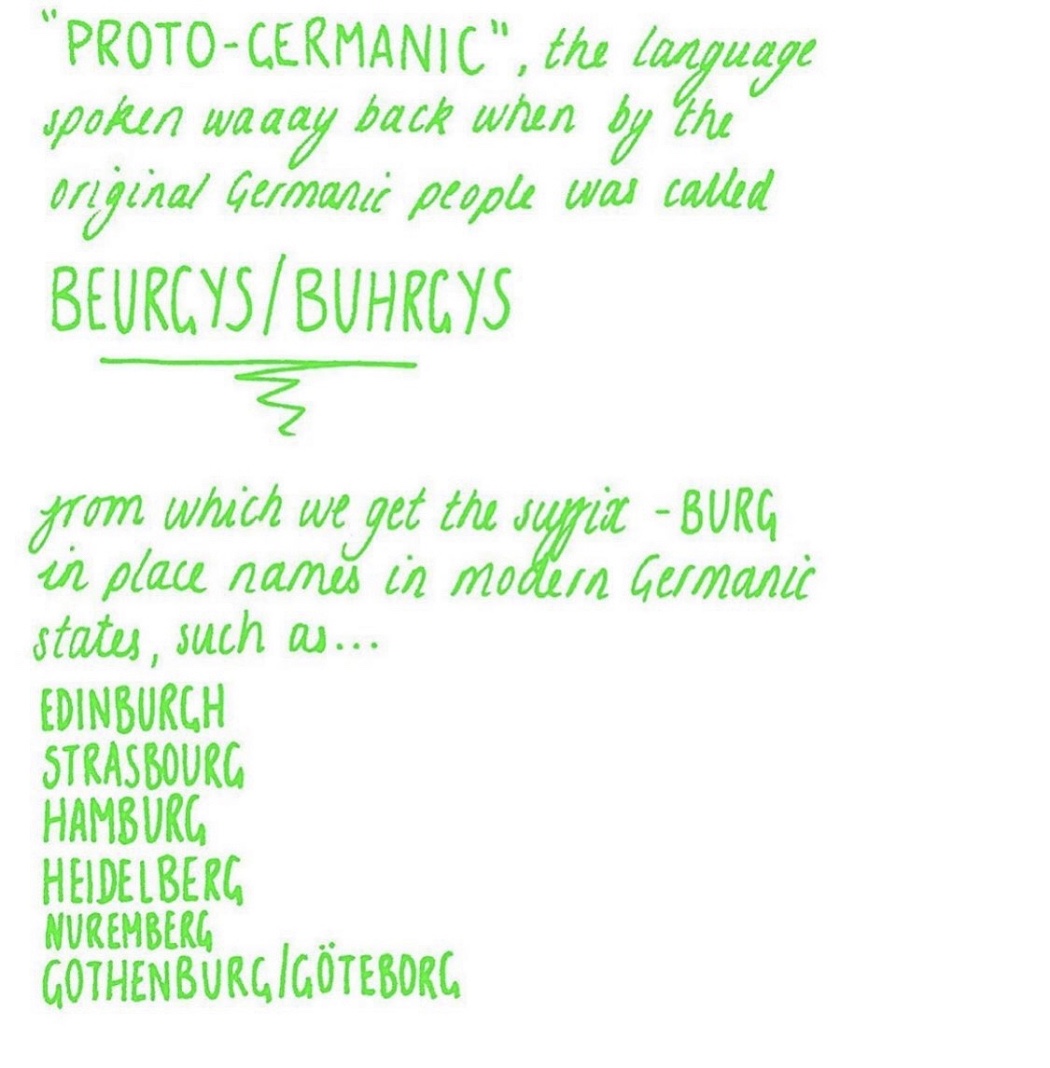 "PROTO-GERMANIC", the language
spoken waaay back when by the
original Germanic people was called
BEURGYS/BUHRGYS
from which we get the suffix -BURG
in place names in modern Germanic
states, such as...
EDINBURGH
STRASBOURG
HAMBURG
HEIDELBERG
NUREMBERG
GOTHENBURG/GÖTEBORG